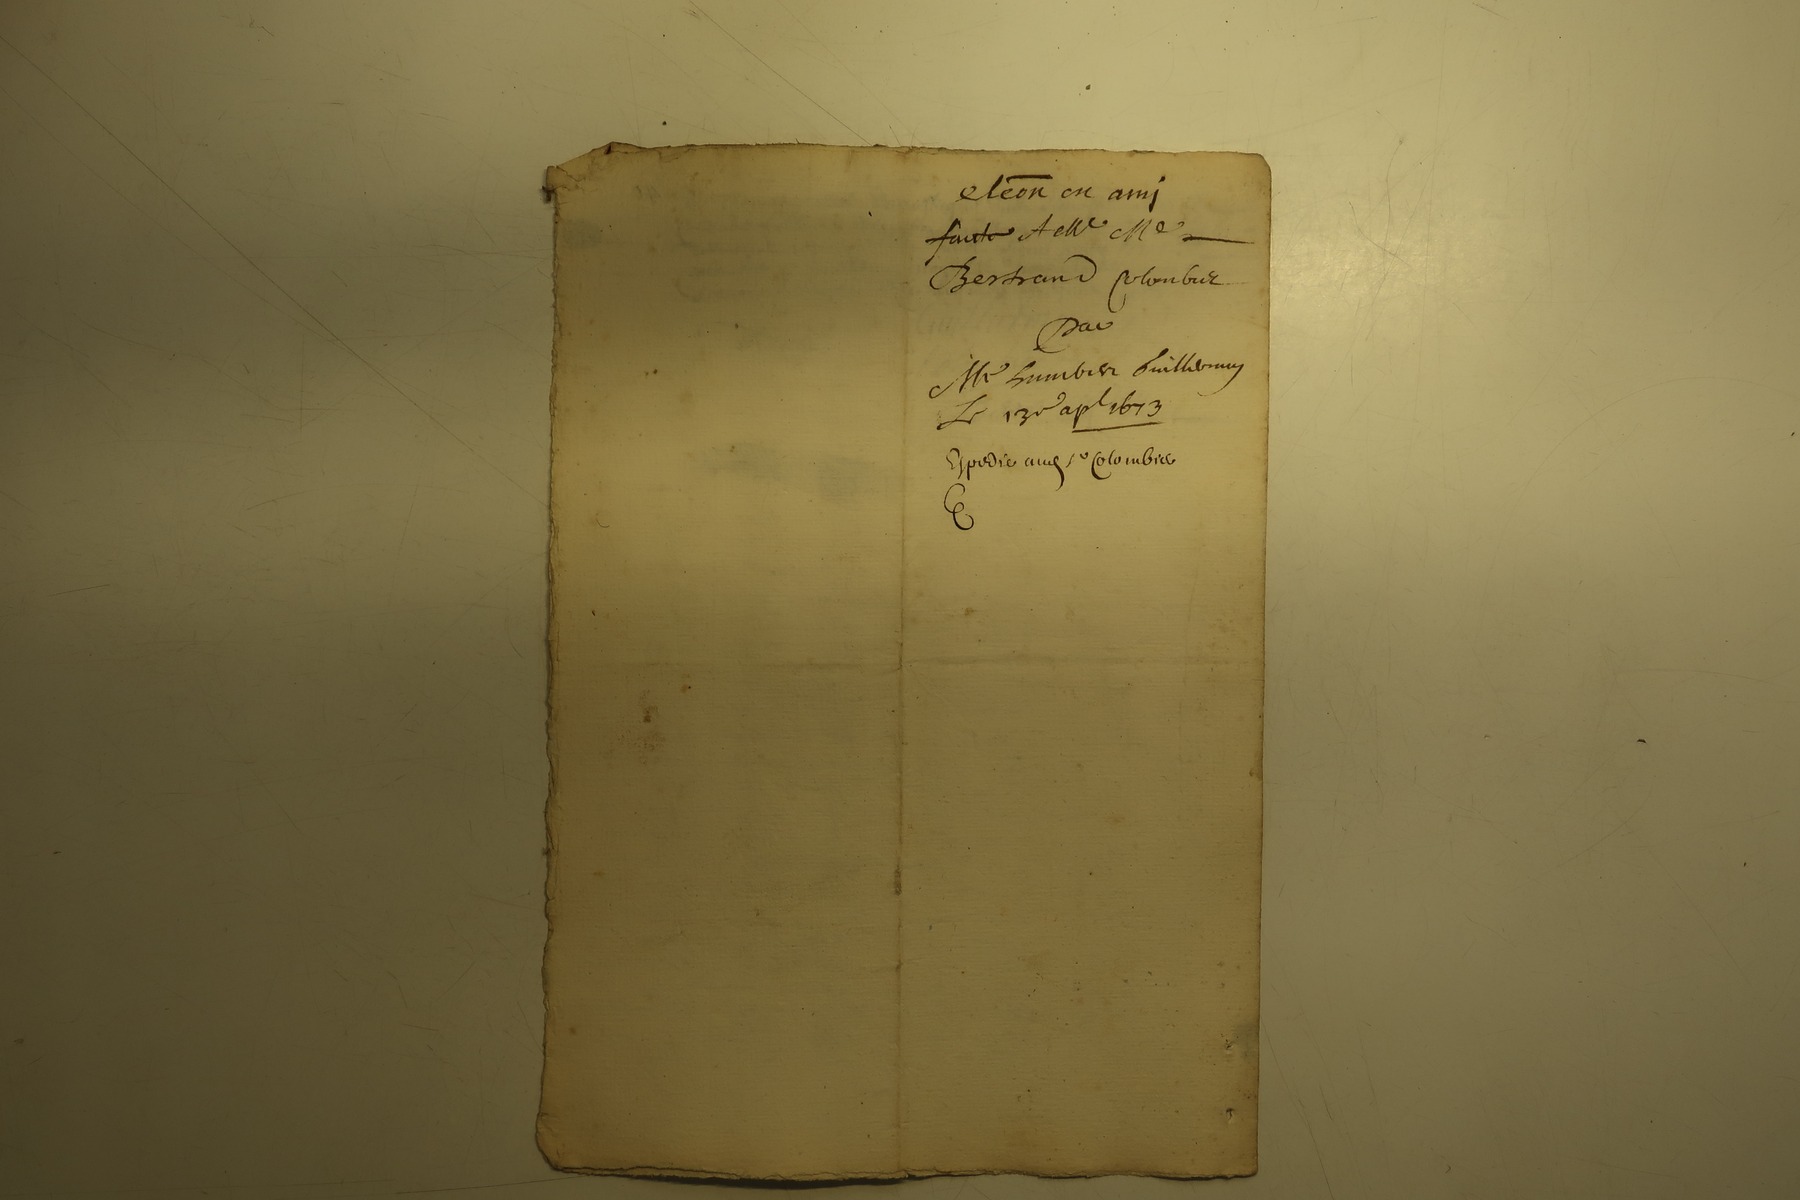 elēon en amj
faicte A Me Me
Bertrand Colonbier
Par
Me humbert Guillermy
Le 13e apl 1673
Expedie aud sr Colombier